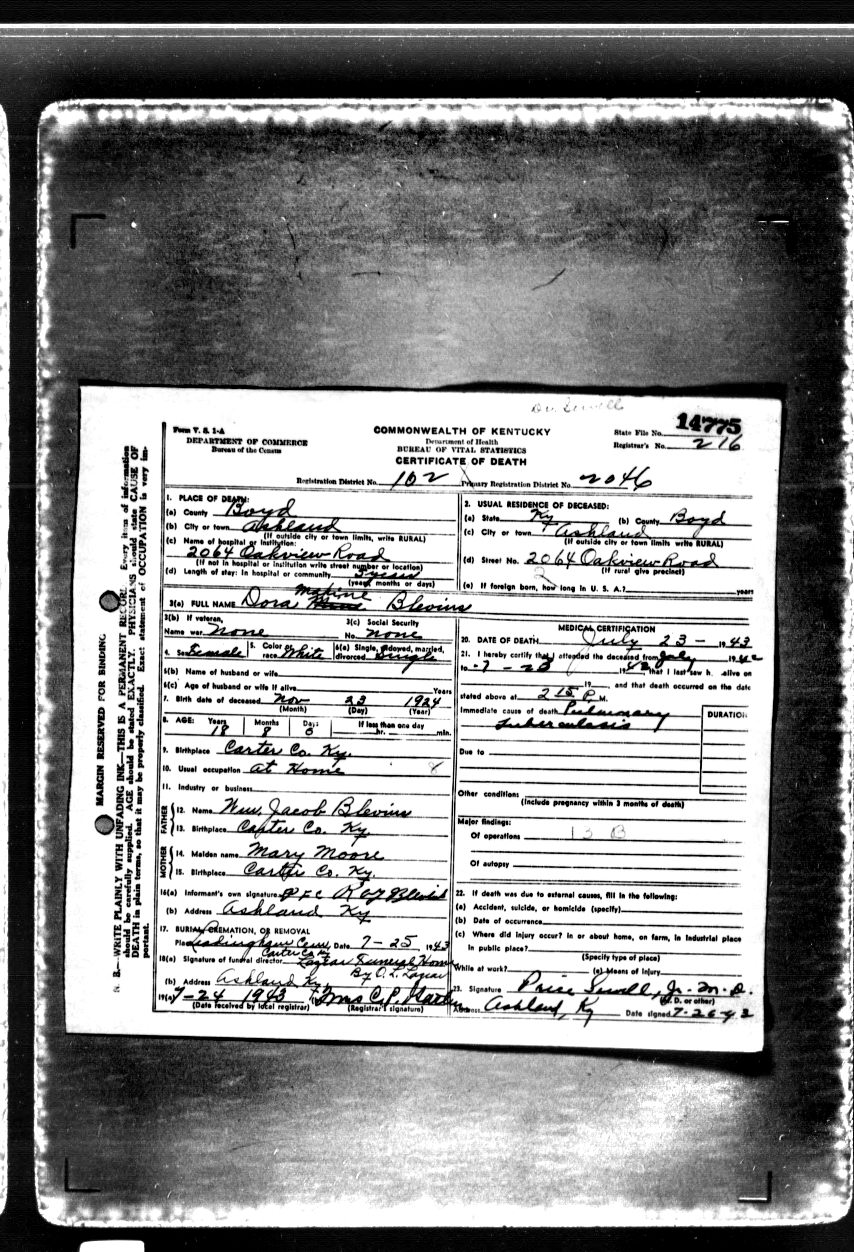 Dr. Sewell
Form V. S. 1-A
DEPARTMENT OF COMMERCE
Bureau of the Census
COMMONWEALTH OF KENTUCKY
Department of Health
BUREAU OF VITAL STATISTICS
CERTIFICATE OF DEATH
State File No. 14775
Registrar's No. 216
Registration District No. 102 Primary Registration District No. 2046
MARGIN RESERVED FOR BINDING
N. B.—WRITE PLAINLY WITH UNFADING INK—THIS IS A PERMANENT RECORD. Every item of information
should be carefully supplied. AGE should be stated EXACTLY. PHYSICIANS should state CAUSE OF
DEATH in plain terms, so that it may be properly classified. Exact statement of OCCUPATION is very im-
portant.
1. PLACE OF DEATH:
(a) County Boyd
(b) City or town Ashland
(If outside city or town limits, write RURAL)
(c) Name of hospital or institution:
2064 Oakview Road
(If not in hospital or institution write street number or location)
(d) Length of stay: In hospital or community 5 years
(years, months or days)
2. USUAL RESIDENCE OF DECEASED:
(a) State Ky (b) County Boyd
(c) City or town Ashland
(If outside city or town limits write RURAL)
(d) Street No. 2064 Oakview Road
(If rural give precinct)
(e) If foreign born, how long in U. S. A.? years
3(a) FULL NAME Dora Maxine Blevins
3(b) If veteran, 3(c) Social Security
Name war None No. none
4. Sex Female 5. Color or race White 6(a) Single, widowed, married, divorced Single
6(b) Name of husband or wife
6(c) Age of husband or wife if alive Years
7. Birth date of deceased Nov 23 1924
(Month) (Day) (Year)
8. AGE: Years Months Days If less than one day
18 8 0 hr. min.
9. Birthplace Carter Co. Ky.
10. Usual occupation at Home 8
11. Industry or business
FATHER
12. Name Wm. Jacob Blevins
13. Birthplace Carter Co. Ky
MOTHER
14. Maiden name Mary Moore
15. Birthplace Carter Co. Ky.
16(a) Informant's own signature PFC Roy Blevins
(b) Address Ashland Ky
17. BURIAL, CREMATION, OR REMOVAL
Place Cem, Date 7-25 1943
Carter Co Ky
18(a) Signature of funeral director Lazear Funeral Home
By O. L. Lazear
(b) Address Ashland Ky
19(a) 7-24 1943 (b) Mrs C. P.
(Date received by local registrar) (Registrar's signature)
MEDICAL CERTIFICATION
20. DATE OF DEATH July 23 - 1943
21. I hereby certify that I attended the deceased from July 1942
to 7-23 1943, that I last saw h alive on
19 , and that death occurred on the date
stated above at 2 15 P M.
Immediate cause of death Pulmonary
Tuberculosis
DURATION
Due to
Other conditions
(Include pregnancy within 3 months of death)
Major findings:
Of operations 13 B
Of autopsy
22. If death was due to external causes, fill in the following:
(a) Accident, suicide, or homicide (specify)
(b) Date of occurrence
(c) Where did injury occur? in or about home, on farm, in industrial place
in public place?
(Specify type of place)
While at work? (e) Means of injury
23. Signature Price Sewell, Jr. M. D.
(M.D. or other)
Address Ashland, Ky Date signed 7-26-43